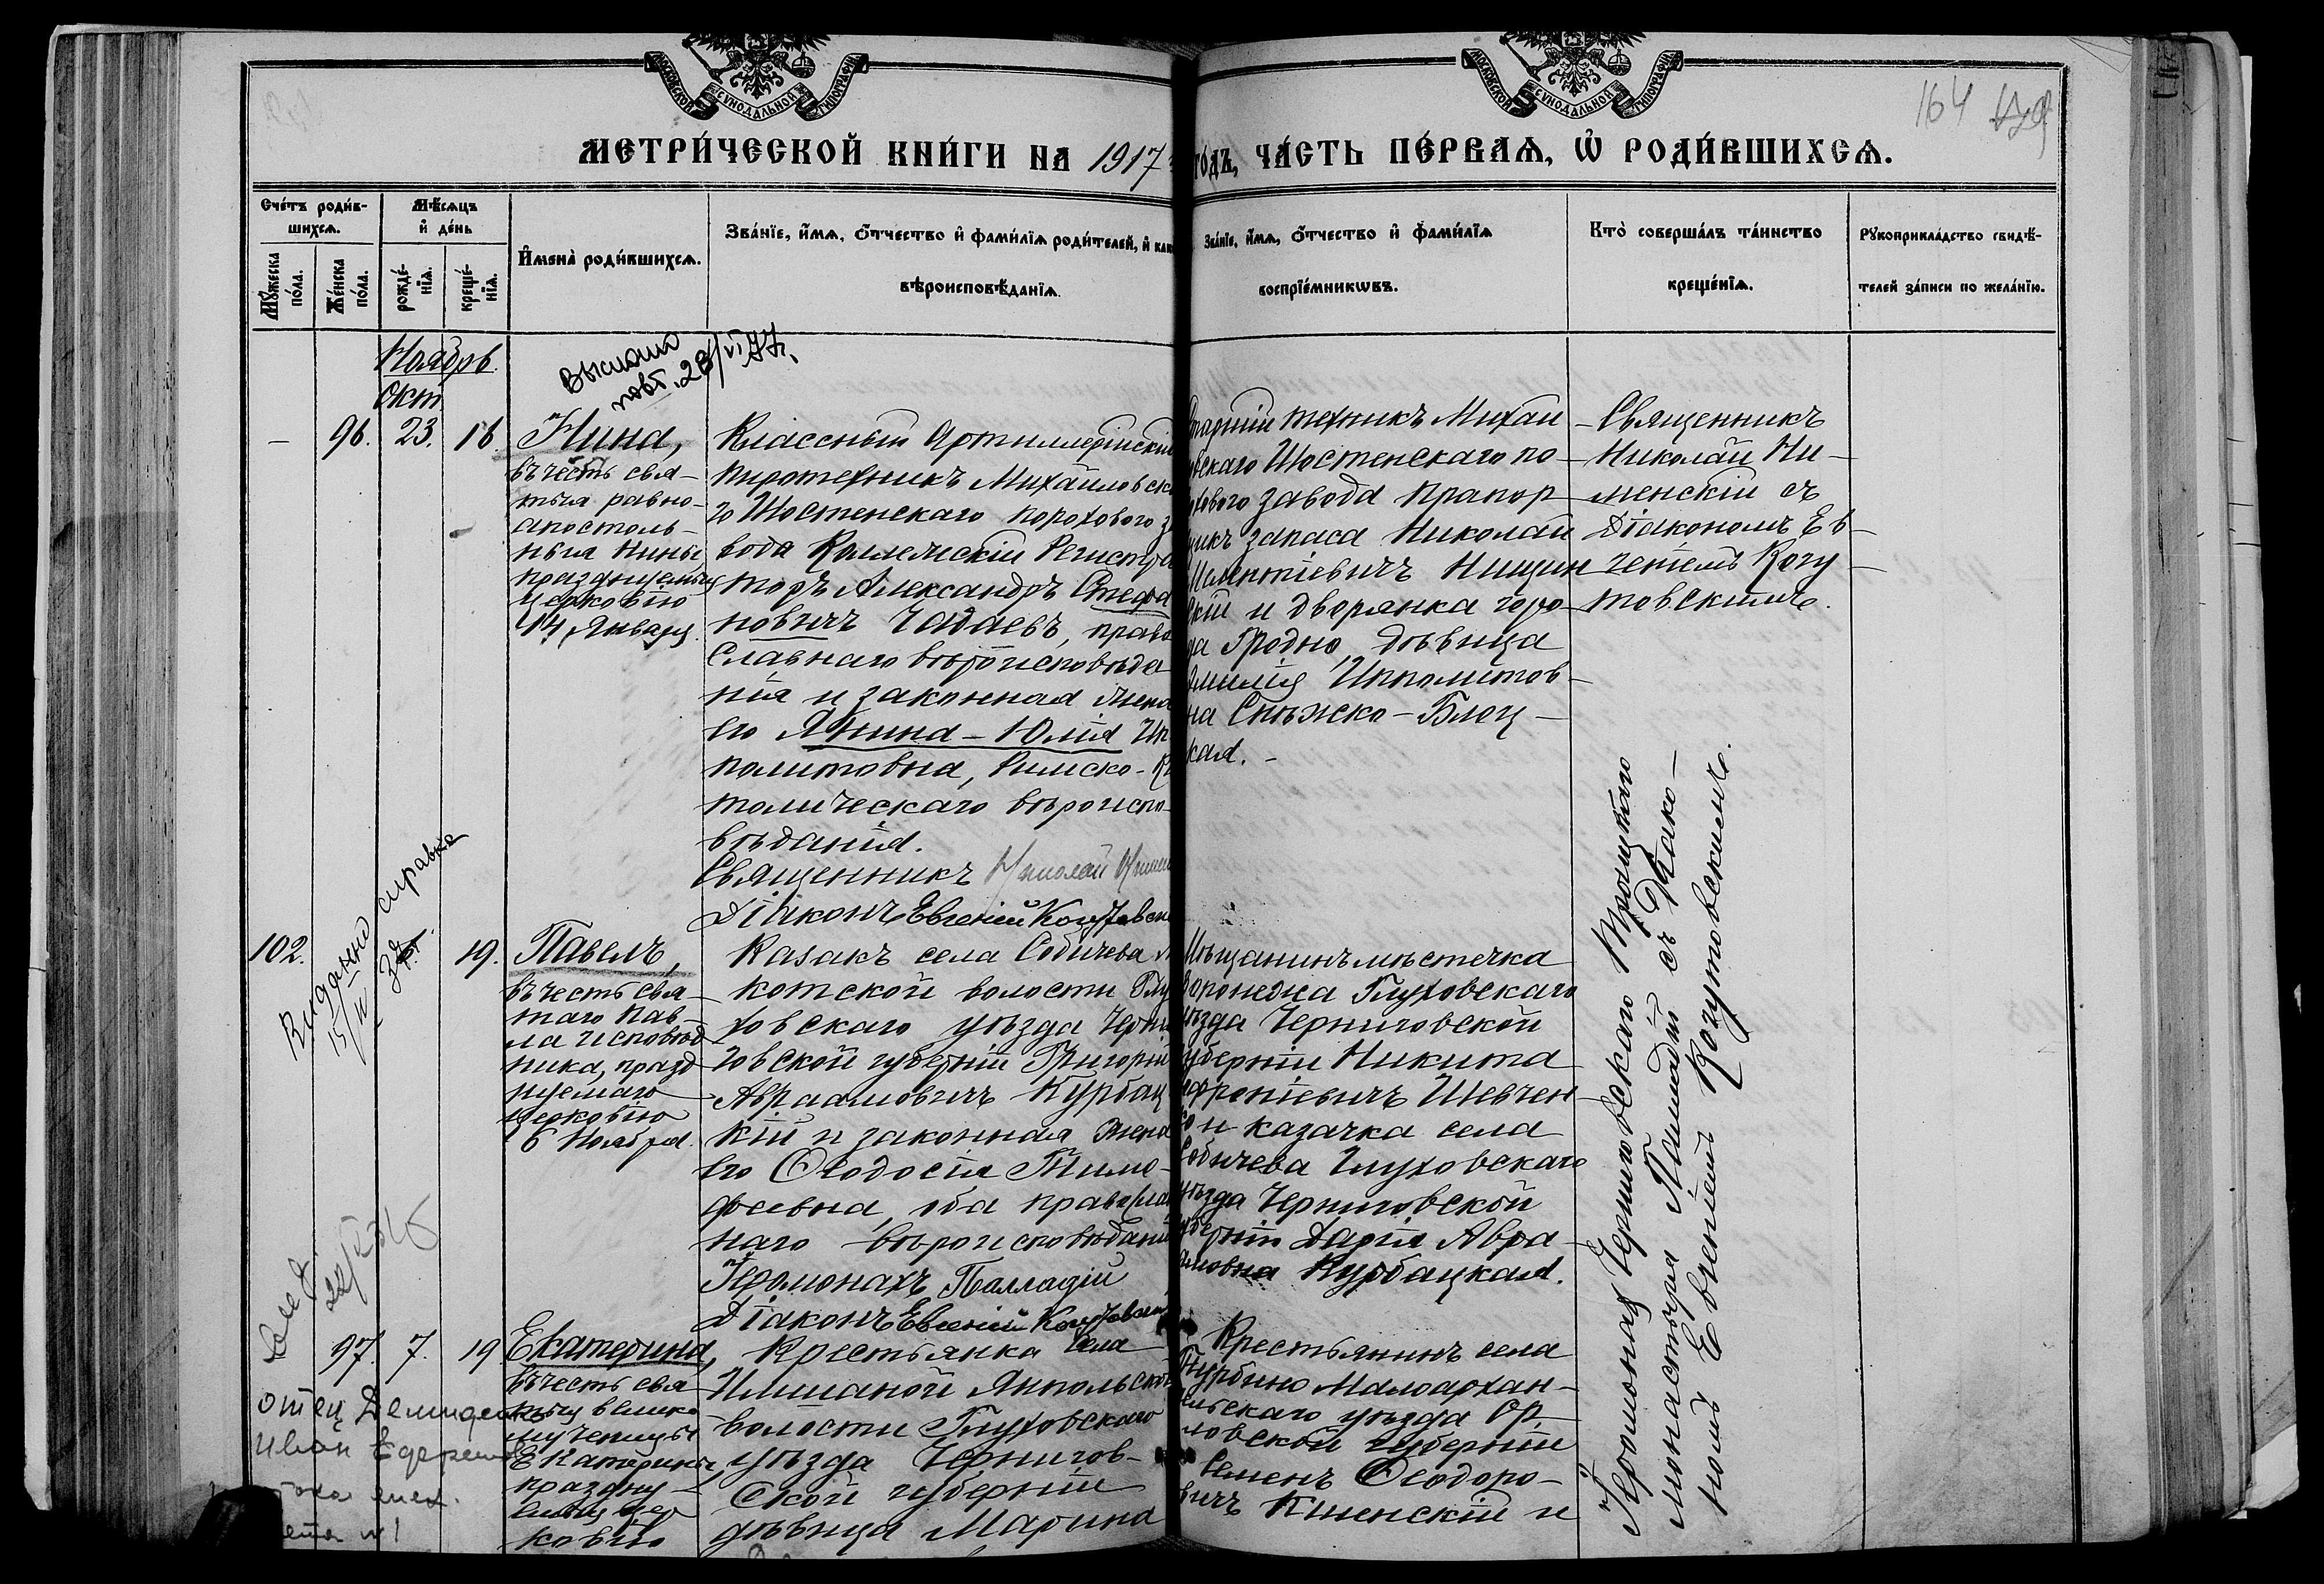 МОСКОВСКОЙ СѴНОДАЛЬНОЙ ТИПОГРАФІИ
МОСКОВСКОЙ СѴНОДАЛЬНОЙ ТИПОГРАФІИ
164
МЕТРИ́ЧЕСКОЙ КНИ́ГИ НА 1917
ГО́ДЪ, ЧА́СТЬ ПЕ́РВАѦ, Ѿ РОДИ́ВШИХСѦ.
Сче́тъ роди́в-
шихсѧ.
Мꙋ́жеска по́ла.
Же́нска по́ла.
Мѣ́сѧцъ
и҆ де́нь
рожде́-
нїѧ.
креще́-
нїѧ.
И҆мена̀ роди́вшихсѧ.
Зва́нїе, и҆́мѧ, ѻ҆́тчество и҆ фами́лїѧ роди́телей, и҆ как
вѣроисповѣ́данїѧ.
Зва́нїе, и҆́мѧ, ѻ҆́тчество и҆ фами́лїѧ
воспрїе́мникѡвъ.
Кто̀ соверша́лъ та́инство
креще́нїѧ.
Рꙋкоприкла́дство свидѣ́-
телей за́писи по жела́нїю.
Ноябрь.
Окт
выслано
повт. 28/VI 77г.
— 96. 23. 16.
Нина,
въ честь свя-
тыя равно-
апостоль-
ныя Нины
празднуемыя
церковію
14 Января.
Классный Артиллерійскій
пиротехникъ Михайловска
го Шостенскаго порохового за
вода Коллежскій Регистра
торъ Александръ Стефа
новичъ Чадаевъ, право
славнаго вѣроисповѣда
нія и законная жена
его Янина-Юлія Ип
политовна, Римско-Ка
толическаго вѣроиспо-
вѣданія.
Священникъ Николай Нимен
Діаконъ Евгеній Когутовск
Старшій техникъ Михай
ловскаго Шостенскаго по-
рохового завода Прапор
щикъ запаса Николай
Мелентіевичъ Нищин
скій и дворянка горо-
да Гродно, дѣвица
Эмилія Ипполитов-
на Снѣжско-Блоц-
кая.
Священникъ
Николай Ни-
менскій съ
Діакономъ Ев-
геніемъ Когу-
товскимъ.
102. 19.
Выдана справка
15/II
Павелъ,
въ честь свя-
таго Пав-
ла исповѣд
ника, празд
нуемаго
церковію
6 Ноября.
Казакъ села Собичева
котской волости Глу
ховскаго уѣзда Черни
говской губерніи Григорій
Авраамовичъ Курбац
кій и законная жена
его Ѳеодосія Тимо-
феевна, оба православ
наго вѣроисповѣданія
Іеромонахъ Палладій
Діаконъ Евгеній Когутовск
Мѣщанинъ мѣстечка
Воронежа Глуховскаго
уѣзда Черниговской
губерніи Никита
Софроніевичъ Шевчен-
ко и казачка села
Собичева Глуховскаго
уѣзда Черниговской
губерніи Дарія Авра-
амовна Курбацкая.
Іеромонах Черниговскаго Троицкаго
монастыря Палладій съ Діако-
номъ Евгеніемъ Когутовскимъ.
97. 7. 19
отец Демиденко
Иван
Екатерина,
въ честь свя-
тыя велико
мученицы
Екатерины,
праздну-
емыя цер
ковію
Крестьянка села
Имшаной Янпольской
волости Глуховскаго
уѣзда Чернигов-
ской губерніи
дѣвица Марина
Крестьянинъ села
Турбино Малоархан-
гельскаго уѣзда Ор-
ловской губерніи
Семенъ Ѳеодоро-
вичъ Кшенскій и